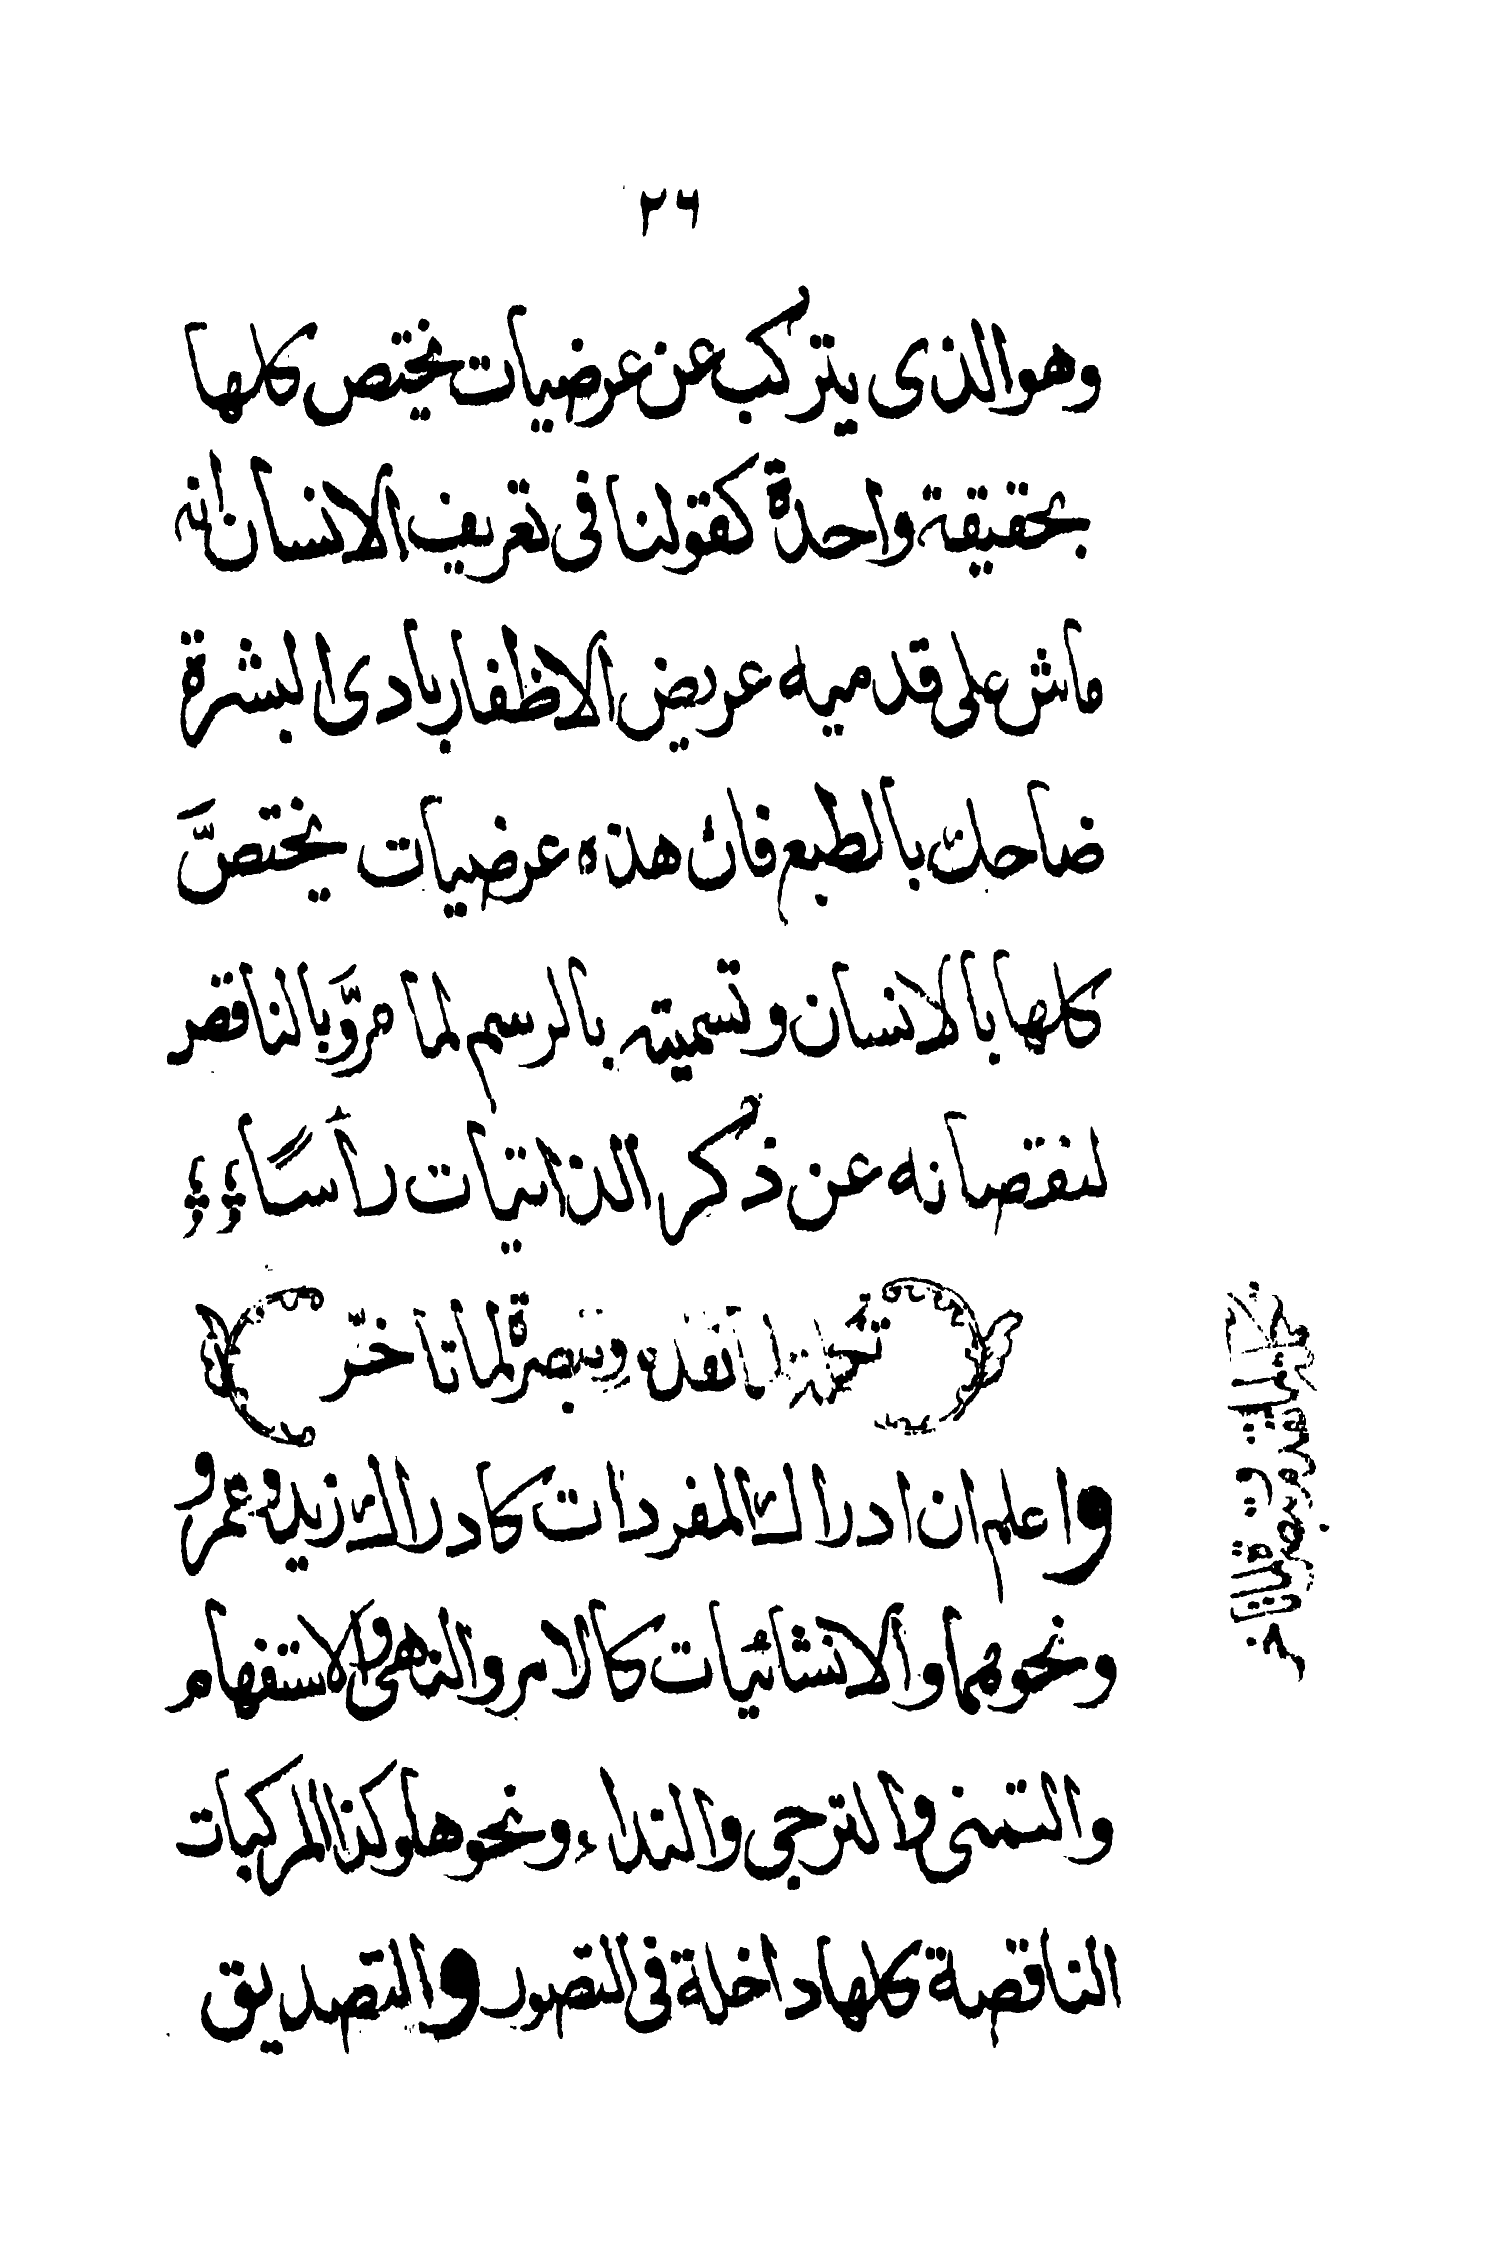 ٢٦
وهو الذى يتركب عن عرضيات يختص كلها
بحقيقة واحدة كقولنا فى تعريف الانسان انه
ماش على قدميه عريض الاظفار بادى البشرة
ضاحك بالطبع فان هذه عرضيات يختصَّ
كلها بالانسان وتسميته بالرسم لما مرَّ وبالناقص
لنقصانه عن ذكر الذاتيات رأسًا
تكملة لما تقدم وتبصرة لما تاخّر
واعلم ان ادراك المفردات كادراك زيد وعمرو
ونحوهما والانشائيات كالامر والنهى والاستفهام
والتمنى والترجى والنداء ونحوها وكذا المركبات
الناقصة كلها داخلة فى التصور والتصديق
تقدم وتبصرة لما تاخر